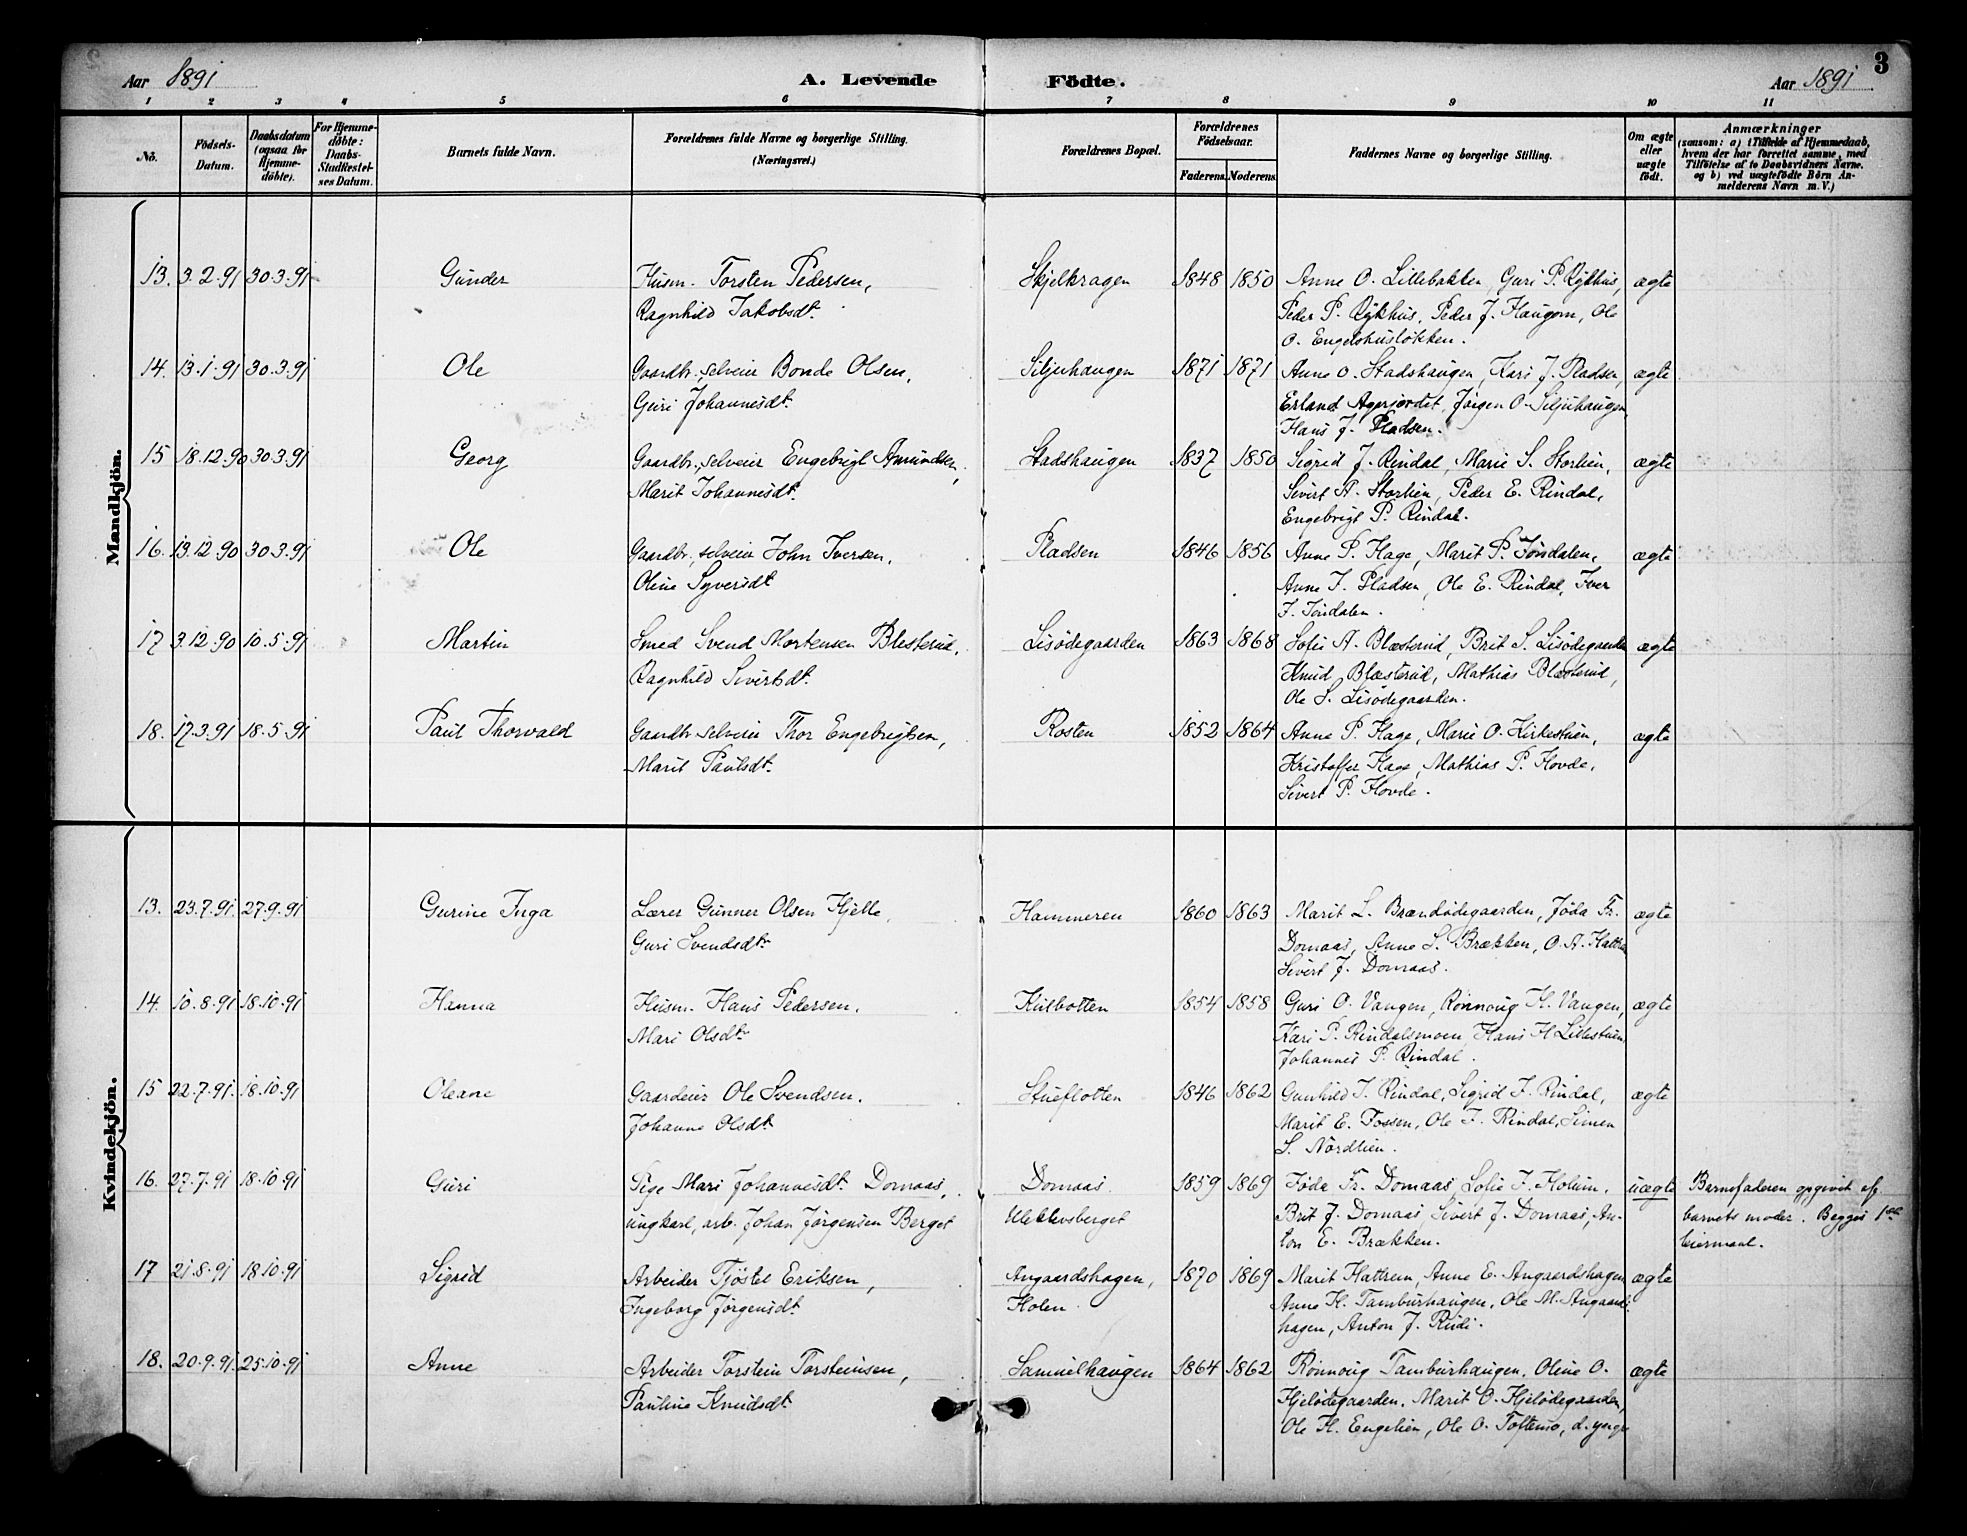 Aar 1891 A. Levende Födte. Aar 1891 3
1 2 3 4 5 6 7 8 9 10 11
No. Födsels-Datum. Daabsdatum (ogsaa for Hjemme-döbte). For Hjemme-döbte: Daabs-Stadfæstel-ses Datum. Barnets fulde Navn. Forældrenes fulde Navne og borgerlige Stilling. (Næringsvei.) Forældrenes Bopæl. Forældrenes Födselsaar. Faderens. Moderens. Faddernes Navne og borgerlige Stilling. Om ægte eller uægte födt. Anmærkninger (saasom: a) i Tilfælde af Hjemmedaab, hvem der har forrettet samme, med Tilföielse af to Daabsvidners Navne, og b) ved uægtefödte Börn An-melderens Navn m. V.)
Mandkjön.
13. 3.2.91 30.3.91 Gunder Husm. Torsten Pedersen, Skjelkragen 1848 1850 Anne O. Lillebakken, Guri P. Rykhus, ægte
Ragnhild Jakobsdt. Peder P. Rykhus, Peder J. Haugom, Ole
O. Engelshusløkken.
14. 13.1.91 30.3.91 Ole Gaardbr. selveier Bonde Olsen, Siljuhaugen 1871 1871 Anne O. Stadshaugen, Kari J. Pladsen, ægte
Guri Johannesdt. Erland Agerjordet, Jørgen O. Siljuhaugen,
Hans J. Pladsen.
15 18.12.90 30.3.91 Georg Gaardbr. selveier Engebrigt Amundsen, Stadshaugen 1837 1850 Sigrid J. Rindal, Marie S. Storlien, ægte
Marit Johannesdt. Sivert A. Storlien, Peder E. Rindal,
Engebrigt P. Rindal.
16. 13.12.90 30.3.91 Ole Gaardbr. selveier John Iversen, Pladsen 1846 1856 Anne P. Hage, Marit P. Jøndalen, ægte
Oline Syversdt. Anne I. Pladsen, Ole E. Rindal, Iver
J. Jøndalen.
17 3.12.90 10.5.91 Martin Smed Svend Mortensen Blesterud, Lisødegaarden 1863 1868 Sofie A. Blæsterud, Brit S. Lisødegaarden ægte
Ragnhild Sivertsdt. Knud Blæsterud, Mathias Blæsterud,
Ole S. Lisødegaarden.
18. 17.3.91 18.5.91 Paul Thorvald Gaardbr. selveier Thor Engebrigtsen, Rosten 1852 1864 Anne P. Hage, Marie O. Kirkestuen, ægte
Marit Paulsdt. Kristoffer Hage, Mathias P. Hovde,
Sivert P. Hovde.
Kvindekjön.
13. 23.7.91. 27.9.91 Gurine Inga Lærer Gunner Olsen Kjelle, Hammeren 1860 1863 Marit L. Brændødegaarden, Jøda Fr. ægte
Guri Svendsdtr Domaas, Anne S. Brækken, O. A. Hattrem
Sivert J. Domaas.
14. 10.8.91 18.10.91 Hanna Husm. Hans Pedersen, Kulbotten 1854 1858 Guri O. Vangen, Rønnoug H. Vangen, ægte
Mari Olsdtr Kari P. Rindalsmoen, Hans H. Lillestuen
Johannes P. Rindal.
15 22.7.91. 18.10.91 Oleane Gaardeier Ole Svendsen, Stueflotten 1846 1862 Gunhild J. Rindal, Sigrid J. Rindal, ægte
Johanne Olsdt. Marit E. Fossen, Ole J. Rindal, Simen
S. Nordlien.
16. 27.7.91 18.10.91 Guri Pige Mari Johannesdt. Domaas, Domaas. 1859 1869 Jøda Fr. Domaas, Sofie J. Holum, uægte Barnefaderen opgivet af
ungkarl, arb. Johan Jørgensen Berget Uleklevsberget Brit J. Domaas, Sivert J. Domaas, An- barnets moder. Begges 1ste
ton E. Brækken. leiermaal.
17 21.8.91 18.10.91 Sigrid Arbeider Tjøstel Eriksen, Angaardshagen, 1870 1869 Marit Hattrem, Anne E. Angaardshagen ægte
Ingeborg Jørgensdt. Holen. Anne H. Tamburhaugen, Ole M. Angaards-
hagen, Anton J. Rudi.
18. 20.9.91 25.10.91 Anne Arbeider Torstein Torsteinsen, Samuelhaugen 1864 1862 Rønnoug Tamburhaugen, Oline O. ægte
Pauline Knudsdt. Hjelødegaarden, Marit O. Hjelødegaarden,
Ole H. Engelien, Ole O. Toftemo, d. yngre